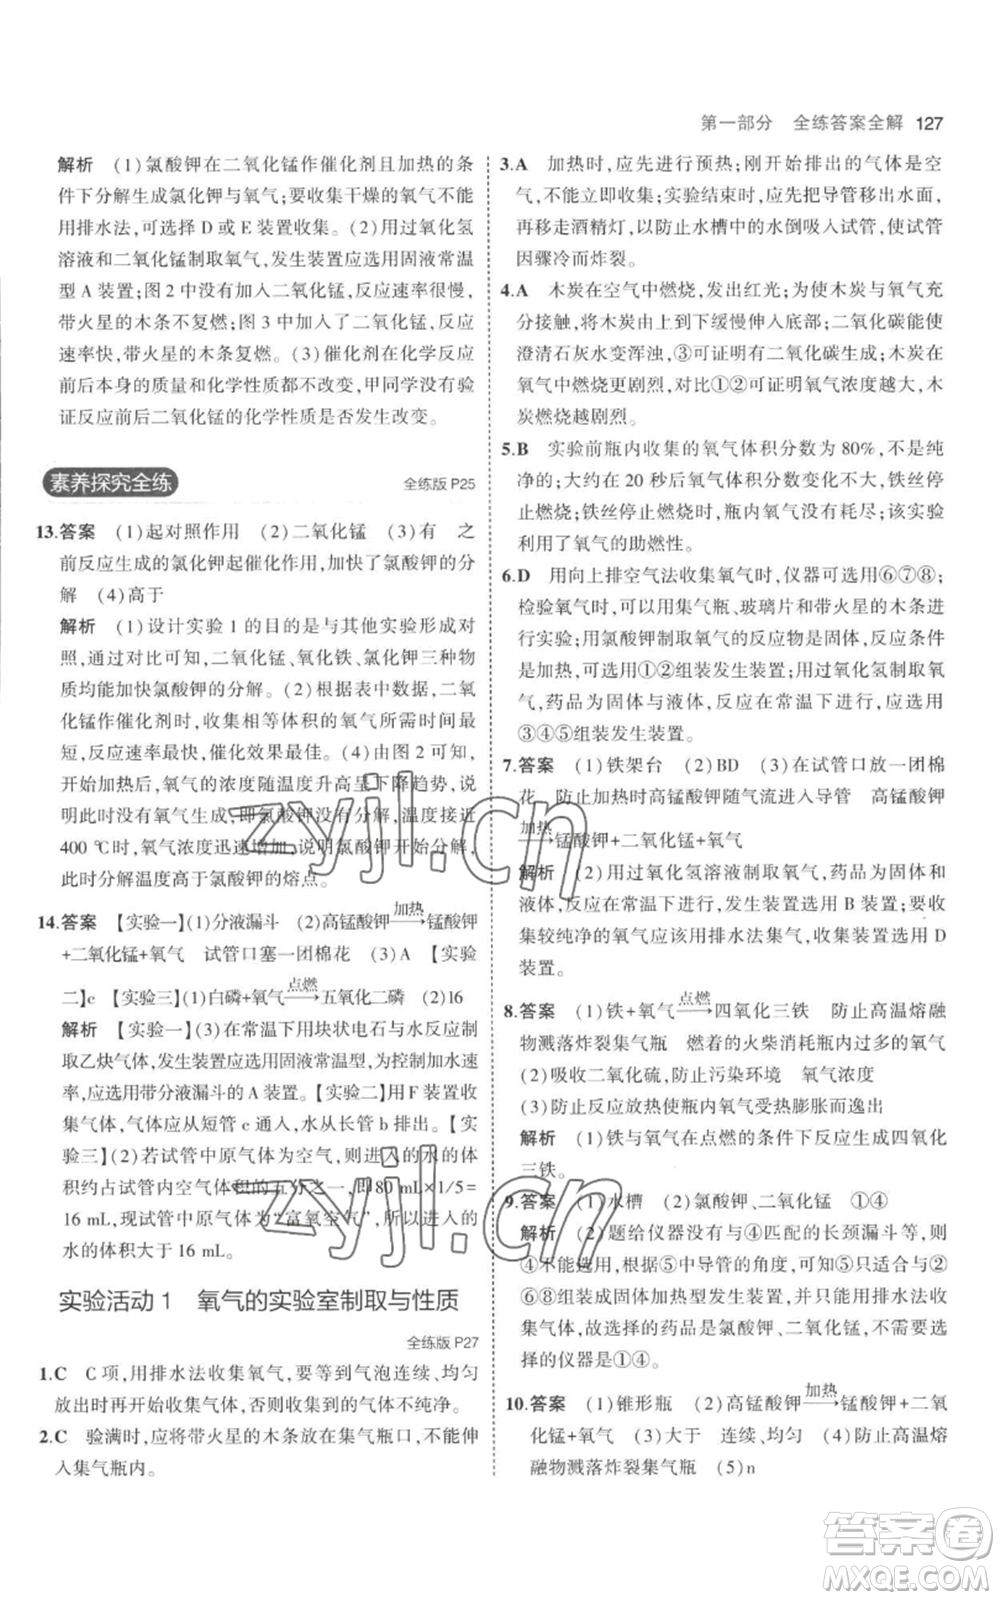 第一部分 全练答案全解 127
解析 (1)氯酸钾在二氧化锰作催化剂且加热的条
件下分解生成氯化钾与氧气;要收集干燥的氧气不能
用排水法,可选择 D 或 E 装置收集。(2)用过氧化氢
溶液和二氧化锰制取氧气,发生装置应选用固液常温
型 A 装置;图 2 中没有加入二氧化锰,反应速率很慢,
带火星的木条不复燃;图 3 中加入了二氧化锰,反应
速率快,带火星的木条复燃。(3)催化剂在化学反应
前后本身的质量和化学性质都不改变,甲同学没有验
证反应前后二氧化锰的化学性质是否发生改变。
素养探究全练 全练版 P25
13.答案 (1)起对照作用 (2)二氧化锰 (3)有 之
前反应生成的氯化钾起催化作用,加快了氯酸钾的分
解 (4)高于
解析 (1)设计实验 1 的目的是与其他实验形成对
照,通过对比可知,二氧化锰、氧化铁、氯化钾三种物
质均能加快氯酸钾的分解。(2)根据表中数据,二氧
化锰作催化剂时,收集相等体积的氧气所需时间最
短,反应速率最快,催化效果最佳。(4)由图 2 可知,
开始加热后,氧气的浓度随温度升高呈下降趋势,说
明没有氧气生成,即氯酸钾没有分解,温度接近
400 ℃时,氧气浓度迅速增加,说明氯酸钾开始分解,
此时分解温度高于氯酸钾的熔点。
14.答案 【实验一】(1)分液漏斗 (2)高锰酸钾 加热→ 锰酸钾
+二氧化锰+氧气 试管口塞一团棉花 (3)A 【实验
二】c 【实验三】(1)白磷+氧气 点燃→ 五氧化二磷 (2)16
解析 【实验一】(3)在常温下用块状电石与水反应制
取乙炔气体,发生装置应选用固液常温型,为控制加水速
率,应选用带分液漏斗的 A 装置。【实验二】用 F 装置收
集氧气,气体应从短管 c 通入,水从长管 b 排出。【实
验三】(2)若试管中原气体为空气,则进入的水的体
积约占试管内空气体积的五分之一,即80 mL×1/5=
16 mL,现试管中原气体为“富氧空气”,则进入试管中
的水的体积大于 16 mL。
实验活动 1 氧气的实验室制取与性质
全练版 P27
1.C C 项,用排水法收集氧气,要等到气泡连续、均匀
放出时再开始收集气体,否则收集到的气体不纯净。
2.C 验满时,应将带火星的木条放在集气瓶口,不能伸
入集气瓶内。
3.A 加热时,应先进行预热;刚开始排出的气体是空
气,不能立即收集;实验结束时,应先把导管移出水面,
再移走酒精灯,以防止水槽中的水倒吸入试管,使试管
因骤冷而炸裂。
4.A 木炭在空气中燃烧,发出红光;为使木炭与氧气充
分接触,将木炭由上到下缓慢伸入底部;二氧化碳能使
澄清石灰水变浑浊,③可证明有二氧化碳生成;木炭在
氧气中燃烧更剧烈,对比①②可证明氧气浓度越大,木
炭燃烧越剧烈。
5.B 实验前瓶内收集的氧气体积分数为 80%,不是纯
净的;大约在 20 秒后氧气体积分数不再变化,铁丝停
止燃烧;铁丝停止燃烧时,瓶内氧气没有耗尽;该实验
利用了氧气的助燃性。
6.D 用向上排空气法收集氧气时,仪器可选用⑥⑦⑧;
检验氧气时,可以用集气瓶、玻璃片和带火星的木条进
行实验;用氯酸钾制取氧气的反应物是固体,反应条件
是加热,可选用①②组装发生装置;用过氧化氢制取氧
气,药品为固体与液体,反应在常温下进行,应选用
③④⑤组装发生装置。
7.答案 (1)铁架台 (2)BD (3)在试管口放一团棉
花 防止加热时高锰酸钾随气流进入导管 高锰酸钾
加热→ 锰酸钾+二氧化锰+氧气
解析 (2)用过氧化氢溶液制取氧气,药品为固体和
液体,反应在常温下进行,发生装置选用 B 装置;要收
集较纯净的氧气应该用排水法集气,收集装置选用 D
装置。
8.答案 (1)铁+氧气 点燃→ 四氧化三铁 防止高温熔融
物溅落炸裂集气瓶 燃着的火柴消耗瓶内过多的氧气
(2)吸收二氧化硫,防止污染环境 氧气浓度
(3)防止反应放热使瓶内氧气受热膨胀而逸出
解析 (1)铁与氧气在点燃的条件下反应生成四氧化
三铁。
9.答案 (1)水槽 (2)氯酸钾、二氧化锰 ①④
解析 (2)题给仪器没有与④匹配的长颈漏斗等,则
④不能选用,由②⑤中导管的角度,可知⑤只适合与②
⑥⑧组装成固体加热型发生装置,并用排水法收集气
体,故选择的药品是氯酸钾、二氧化锰,而不需要选择
的仪器是①④。
10.答案 (1)锥形瓶 (2)高锰酸钾 加热→ 锰酸钾+二氧
化锰+氧气 (3)大于 连续、均匀 (4)防止高温熔
融物溅落炸裂集气瓶 (5)n
zyjl.cn
zyjl.cn
答案圈
MXQE.COM